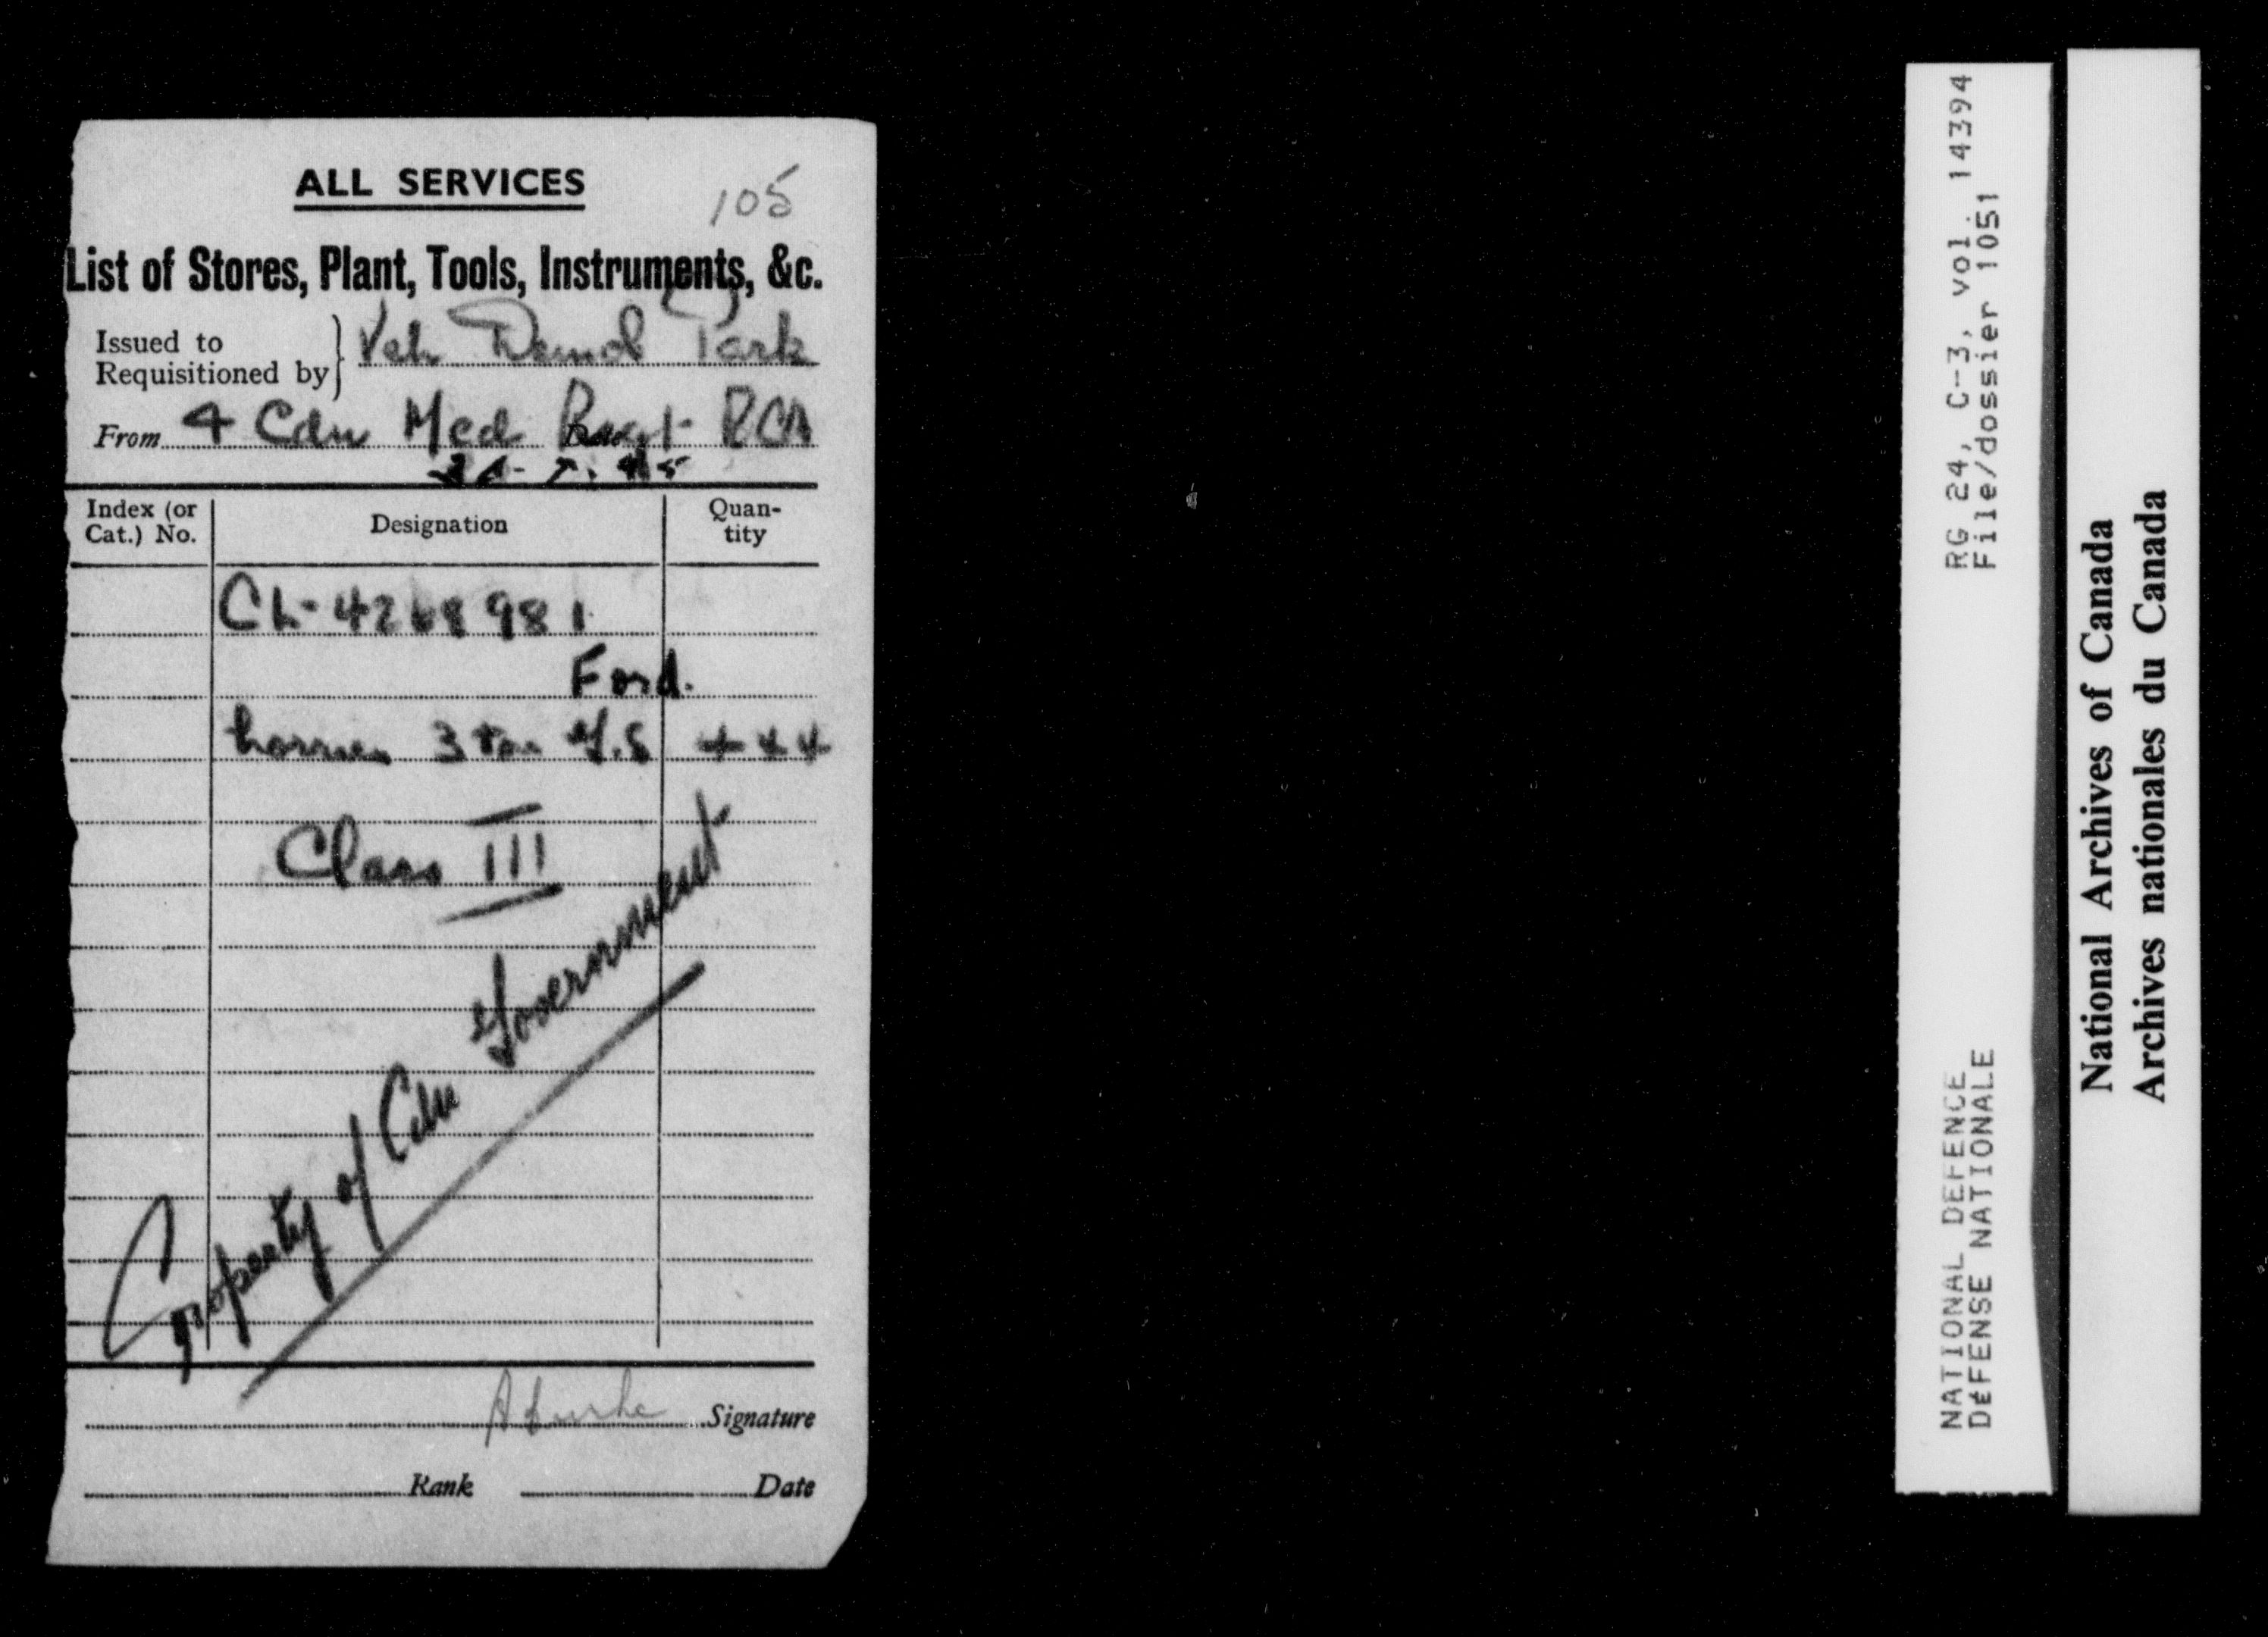 ALL SERVICES
105
List of Stores, Plant, Tools, Instruments, &c.
Issued to
Requisitioned by
Veh Demob Park
From 4 Cdn Med Regt RCA
Index (or
Cat.) No.
Designation
Quan-
tity
CL-4268981
Ford.
3 ton G.S
Class III
Property of Cdn Government
Signature
Rank Date
RG 24, C-3, vol. 14394
File/dossier 1051
NATIONAL DEFENCE
DEFENSE NATIONALE
National Archives of Canada
Archives nationales du Canada